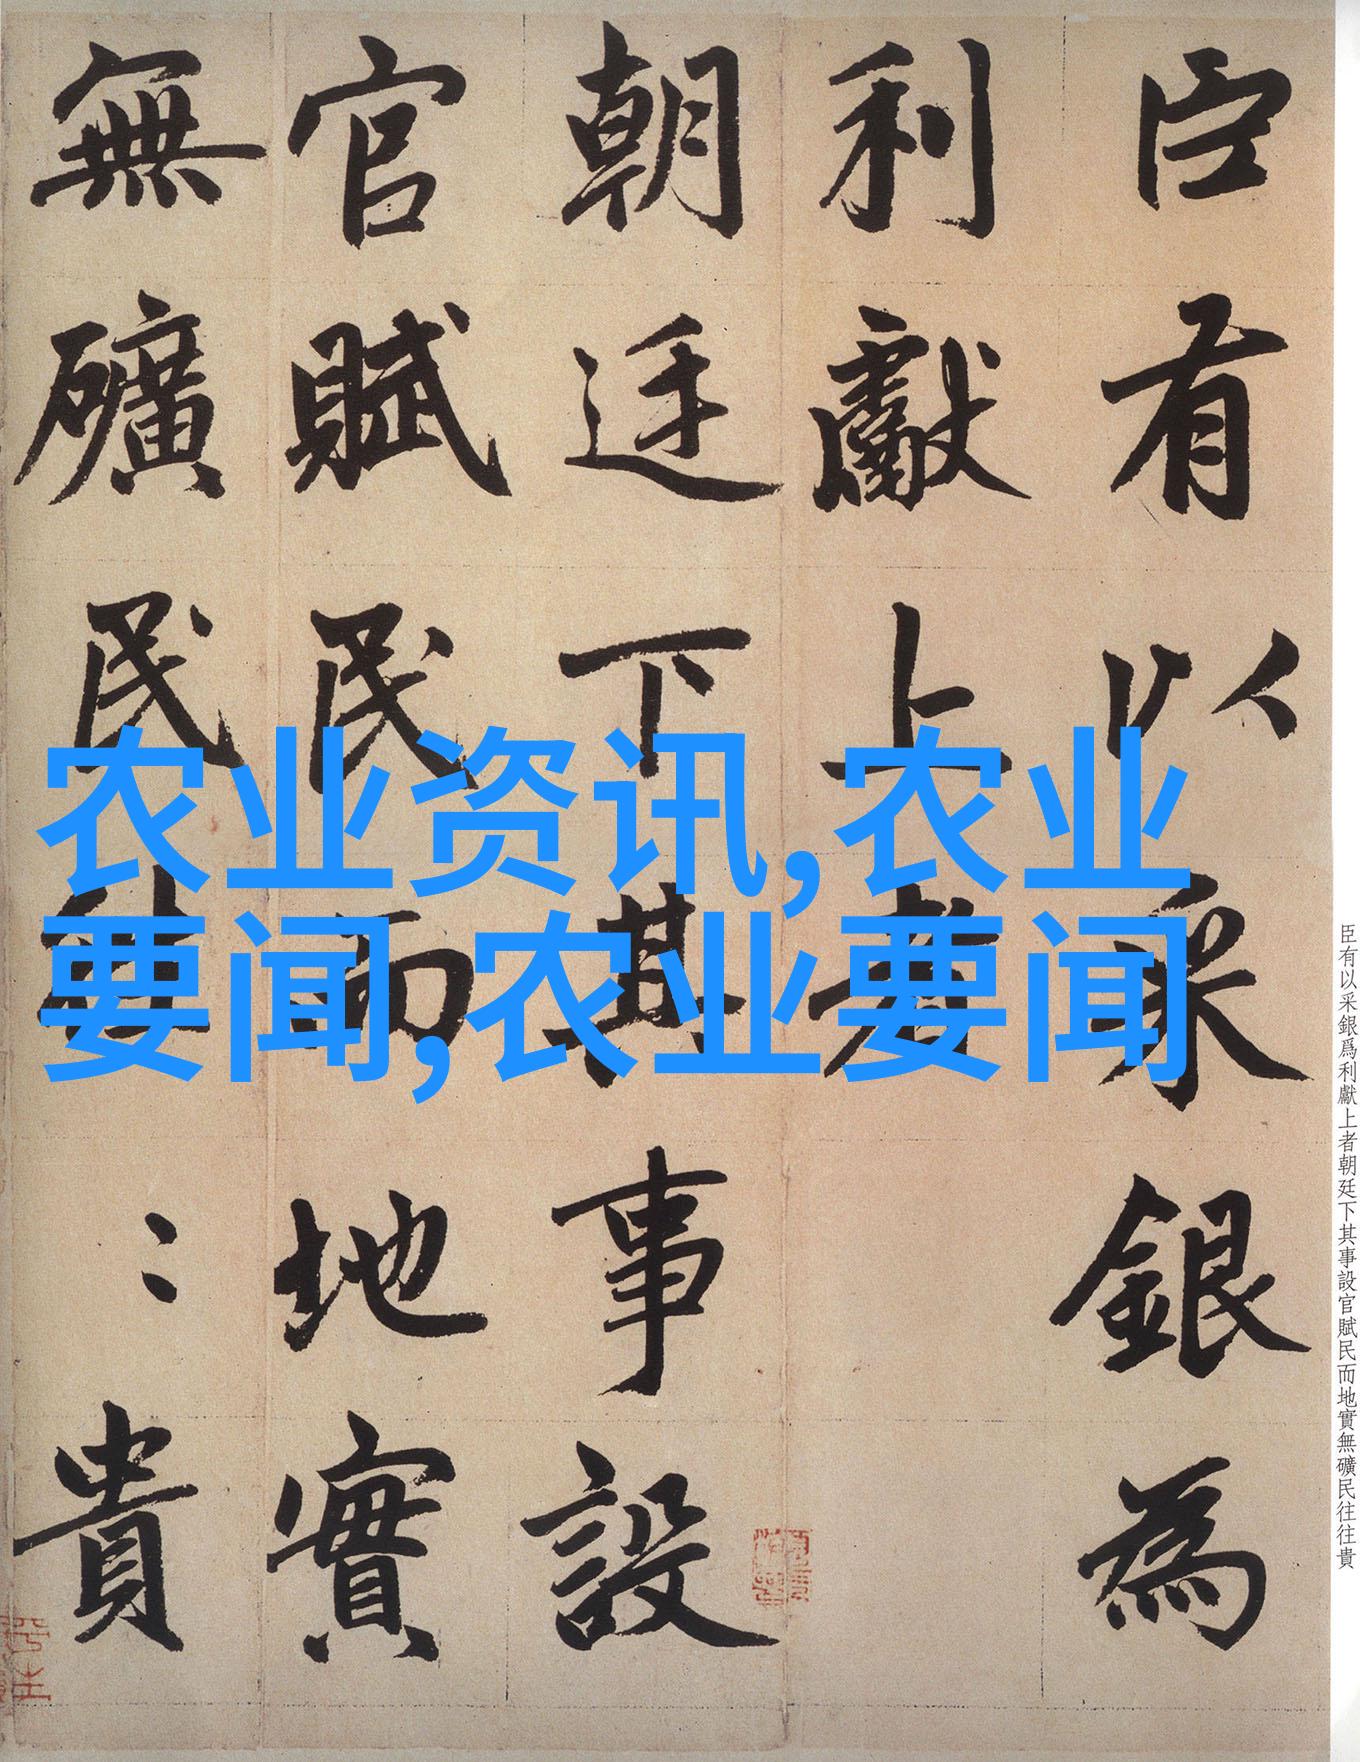 臣有以采銀為
利獻上者
朝廷下其事設
官賦民而地實
無礦民往〻貴
农业资讯,农业
要闻,农业要闻
臣有以采銀爲利獻上者朝廷下其事設官賦民而地實無礦民往往貴